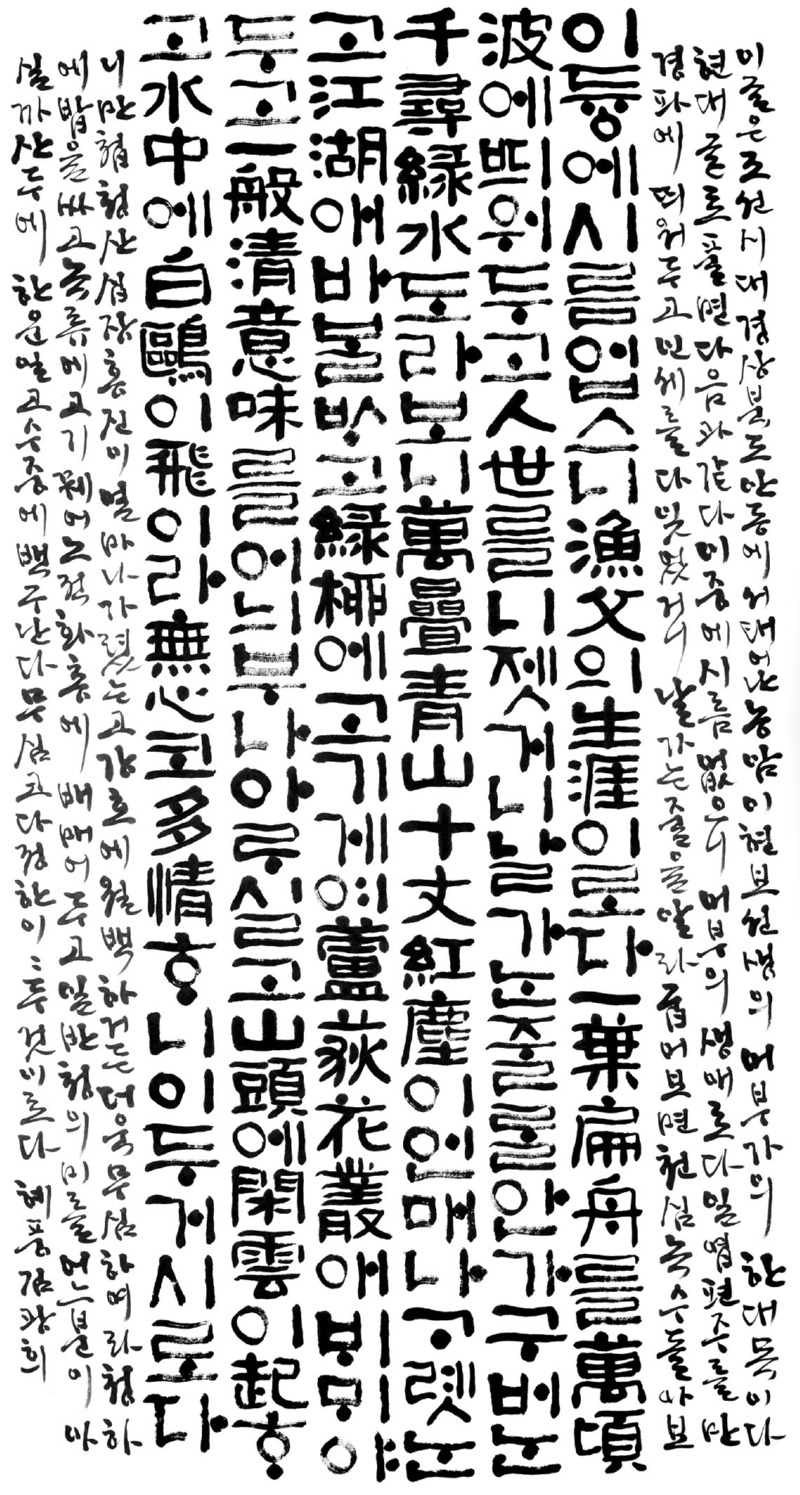 이 글은 조선시대 경상북도 안동에서 태어난 농암 이현보 선생의 어부가의 한 대목이다
현대 글로 풀면 다음과 같다 이 중에 시름 없으니 어부의 생애로다 일엽편주를 만
경파에 띄워두고 인세를 다 잊었거니 날 가는 줄을 알랴 굽어보면 천심녹수 돌아보
이듕에시름업스니漁父의生涯이로다一葉扁舟를萬頃
波에ᄯᅴ워두고人世를니젯거니날가ᄂᆞᆫ주를안가구버ᄂᆞᆫ
千尋綠水도라보니萬疊靑山十丈紅塵이언매나ᄀᆞ렛ᄂᆞᆫ
고江湖애바ᄇᆞᆯᄡᆞ고綠柳에고기ᄢᅦ여蘆荻花叢애ᄇᆡᄆᆡ야
두고一般淸意味를어늬부니아ᄅᆞ시ᄅᆞᆯ고山頭에閑雲이起ᄒᆞ
고水中에白鷗이飛이라無心코多情ᄒᆞ니이두거시로다
니 만첩청산 십장홍진이 얼마나 가렸는고 강호에 월백하거든 더욱 무심하여라 청하
에 밥을 싸고 녹류에 고기 꿰어 노적화총에 배 매어두고 일반청의미를 어느 분이 아
실까 산두에 한운 일고 수중에 백구 난다 무심코 다정한 이 이 두 것이로다 혜풍 김광희